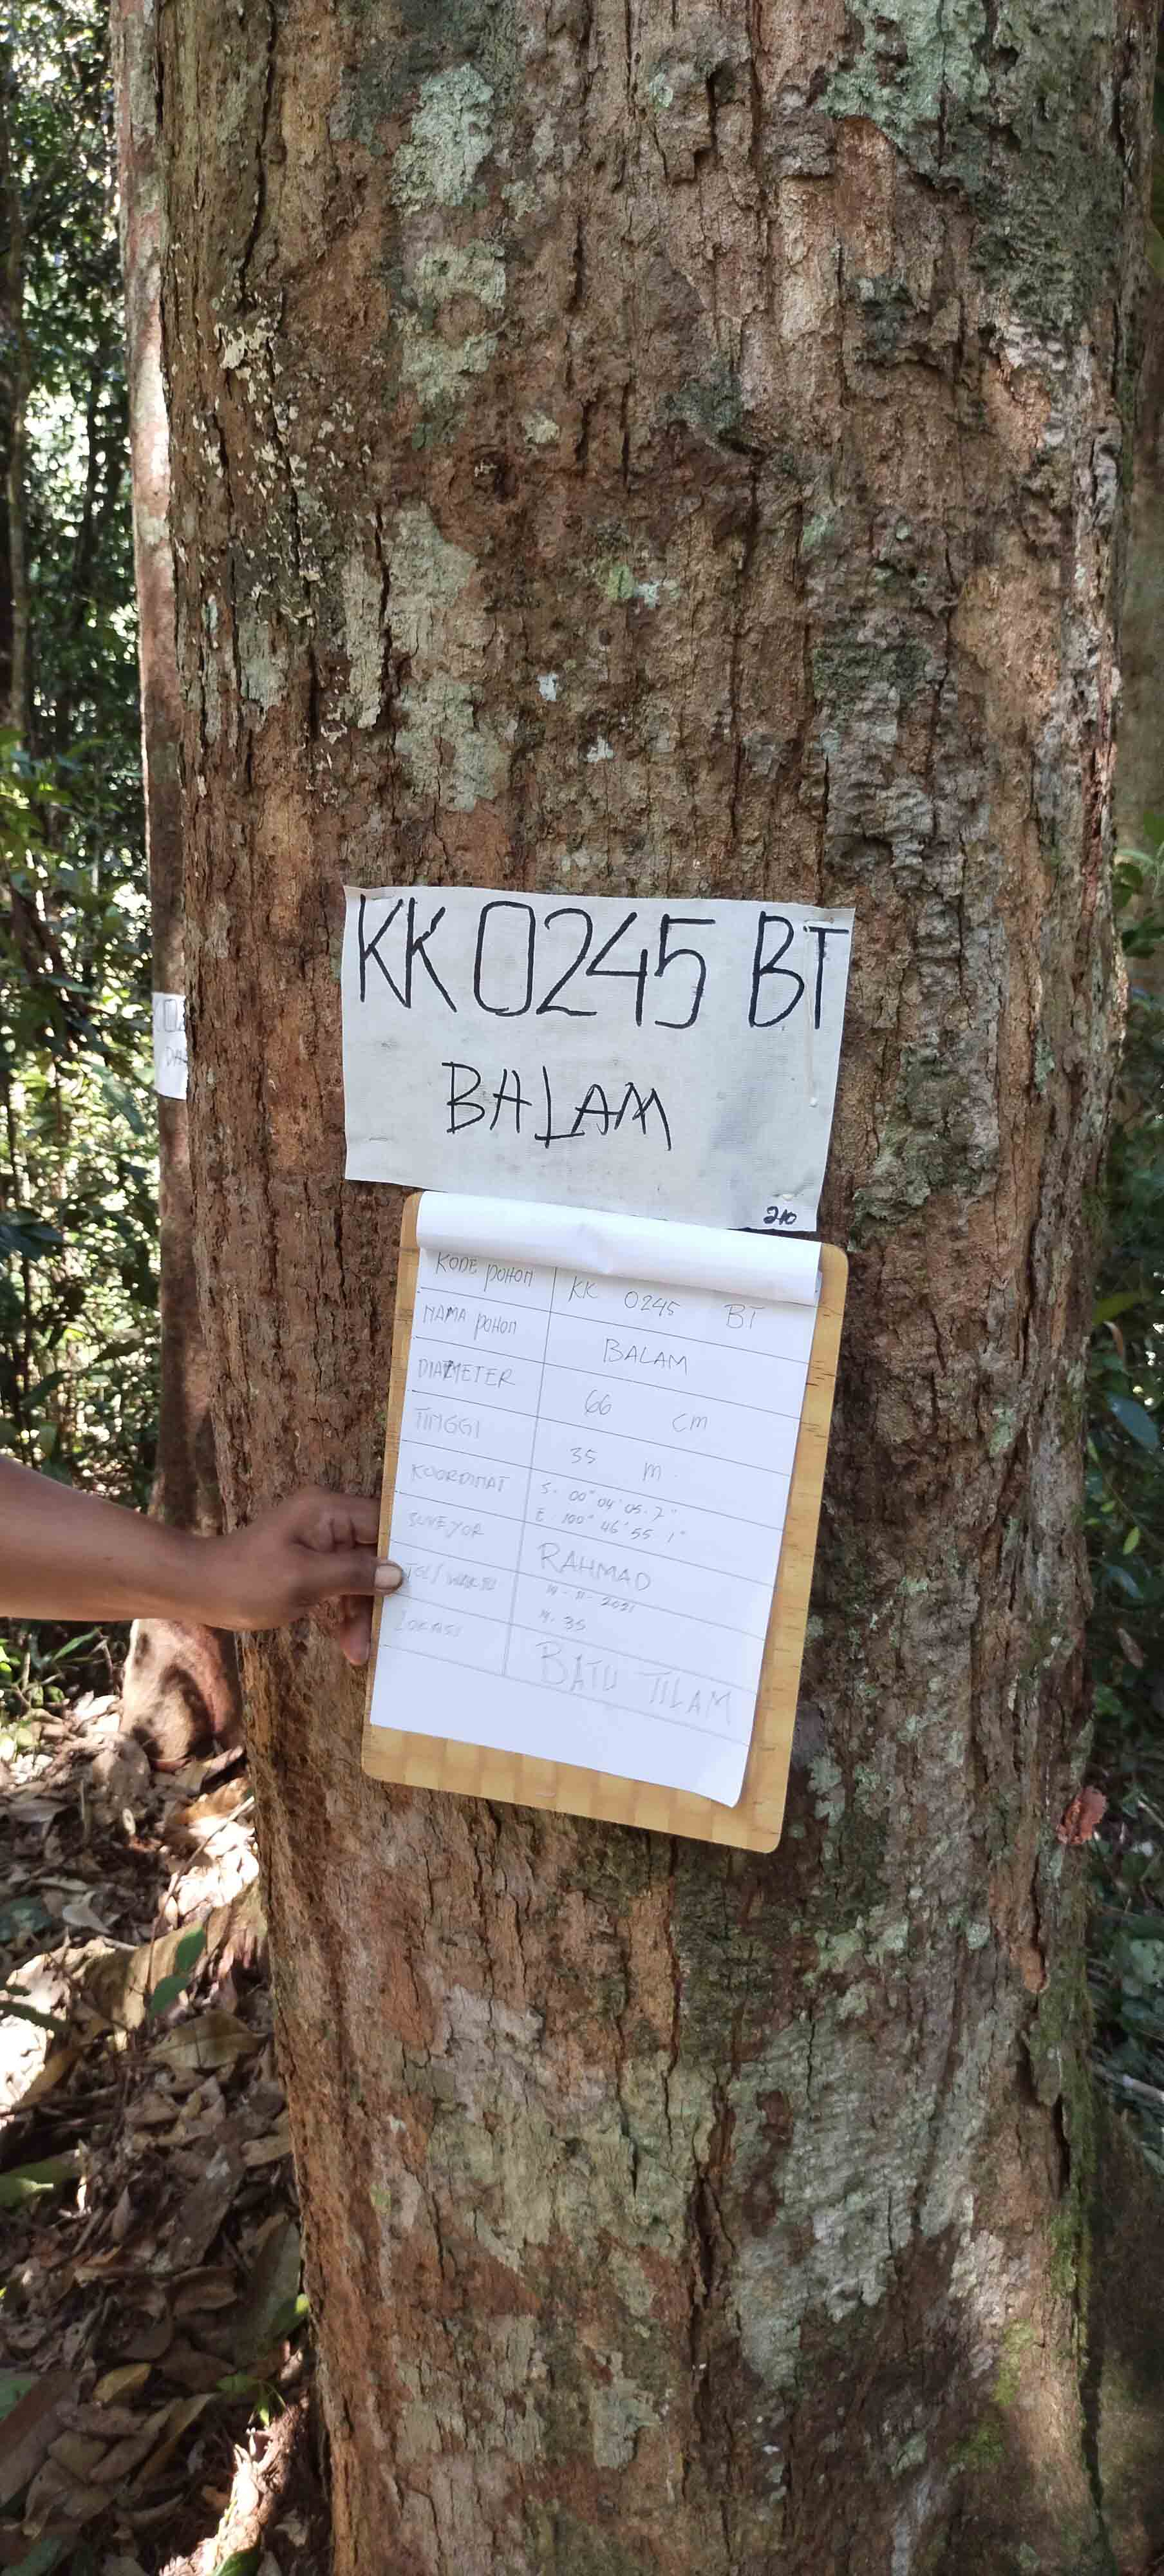 KK 0245 BT
BALAM
210
KODE POHON KK 0245 BT
NAMA POHON BALAM
DIAMETER 66 cm
TINGGI 35 m
KOORDINAT S. 00° 04' 05.7"
E. 100° 46' 55.1"
SUVEYOR RAHMAD
TGL/WAKTU 2021
35
LOKASI BATU TILAM